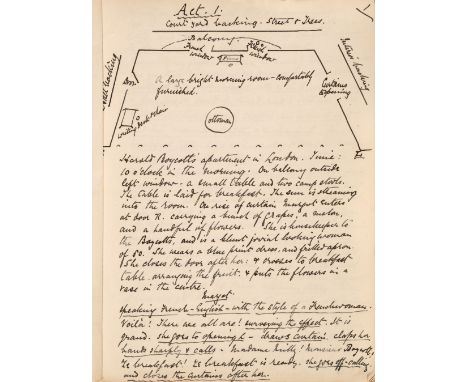 Act. 1.
Court yard backing. Street & Trees.
Balcony.
French window
window
Interior backing
wall backing
Door
Piano
A large bright morning room - comfortably
furnished.
Curtains
opening
writing desk & chair
ottoman
Harold Boycott's apartment in London. Time:
10 o'clock in the morning. On balcony outside
left window - a small table and two camp stools.
The table is laid for breakfast. The sun is streaming
into the room. On rise of curtain Margot enters
at door R. carrying a bunch of grapes, a melon,
and a handful of flowers. She is housekeeper to
the Boycotts, and is a blunt jovial looking woman
of 50. She wears a blue print dress, and frilled apron.
She closes the door after her: & crosses to breakfast
table arranging the fruit, & puts the flowers in a
vase in the centre.
Margot
speaking French-English - with the style of a Frenchwoman.
Voilà! There we all are! surveying the effect. It is
grand. she goes to opening L - draws curtain, claps her
hands sharply & calls - Madame Milly! Monsieur Boycott,
Ze breakfast! Ze breakfast is ready. she goes off calling
and closes the curtains after her.